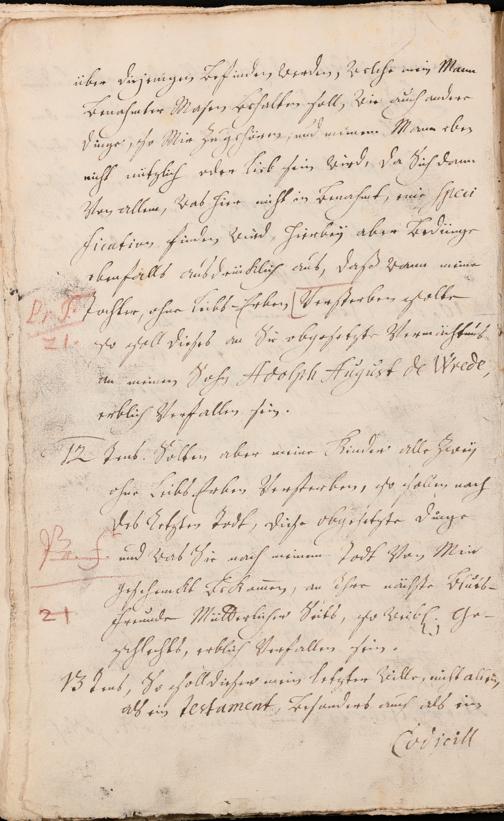 über diejenigen befinden werden, welche mein Mann
benahmter Masen behalten soll, wie auch andere
dinge, so Mir zugehören, und meinem Mann eben
nicht nützlich oder lieb sein wird, da sich dann
von allem, was hier nicht in benahmt, eine Speci
fication finden wird, hierbey aber bedinge
ebenfalls ausdrücklich aus, daß wann meine
Tochter, ohne Leibs-Erben versterben solte
so soll dieses an Sie obgesetzte Vermächtnüs
an meinen Sohn Adolph August de Wrede,
erblich verfallen sein.
21.
12 tens. Solten aber meine Kinder alle zwey
ohne Leibs Erben versterben, so sollen nach
des letzten Todt, diese obgesetzte dinge
und was Sie nach meinem Todt von Mir
geschenckt bekommen, an Ihre nächste Bluts-
21
freunde Mütterlicher Seits, so weibl. Ge-
schlechts, erblich verfallen sein.
13 tens, So soll dieser mein letzter Wille, nicht allein
als ein testament, besonders auch als ein
Codicill